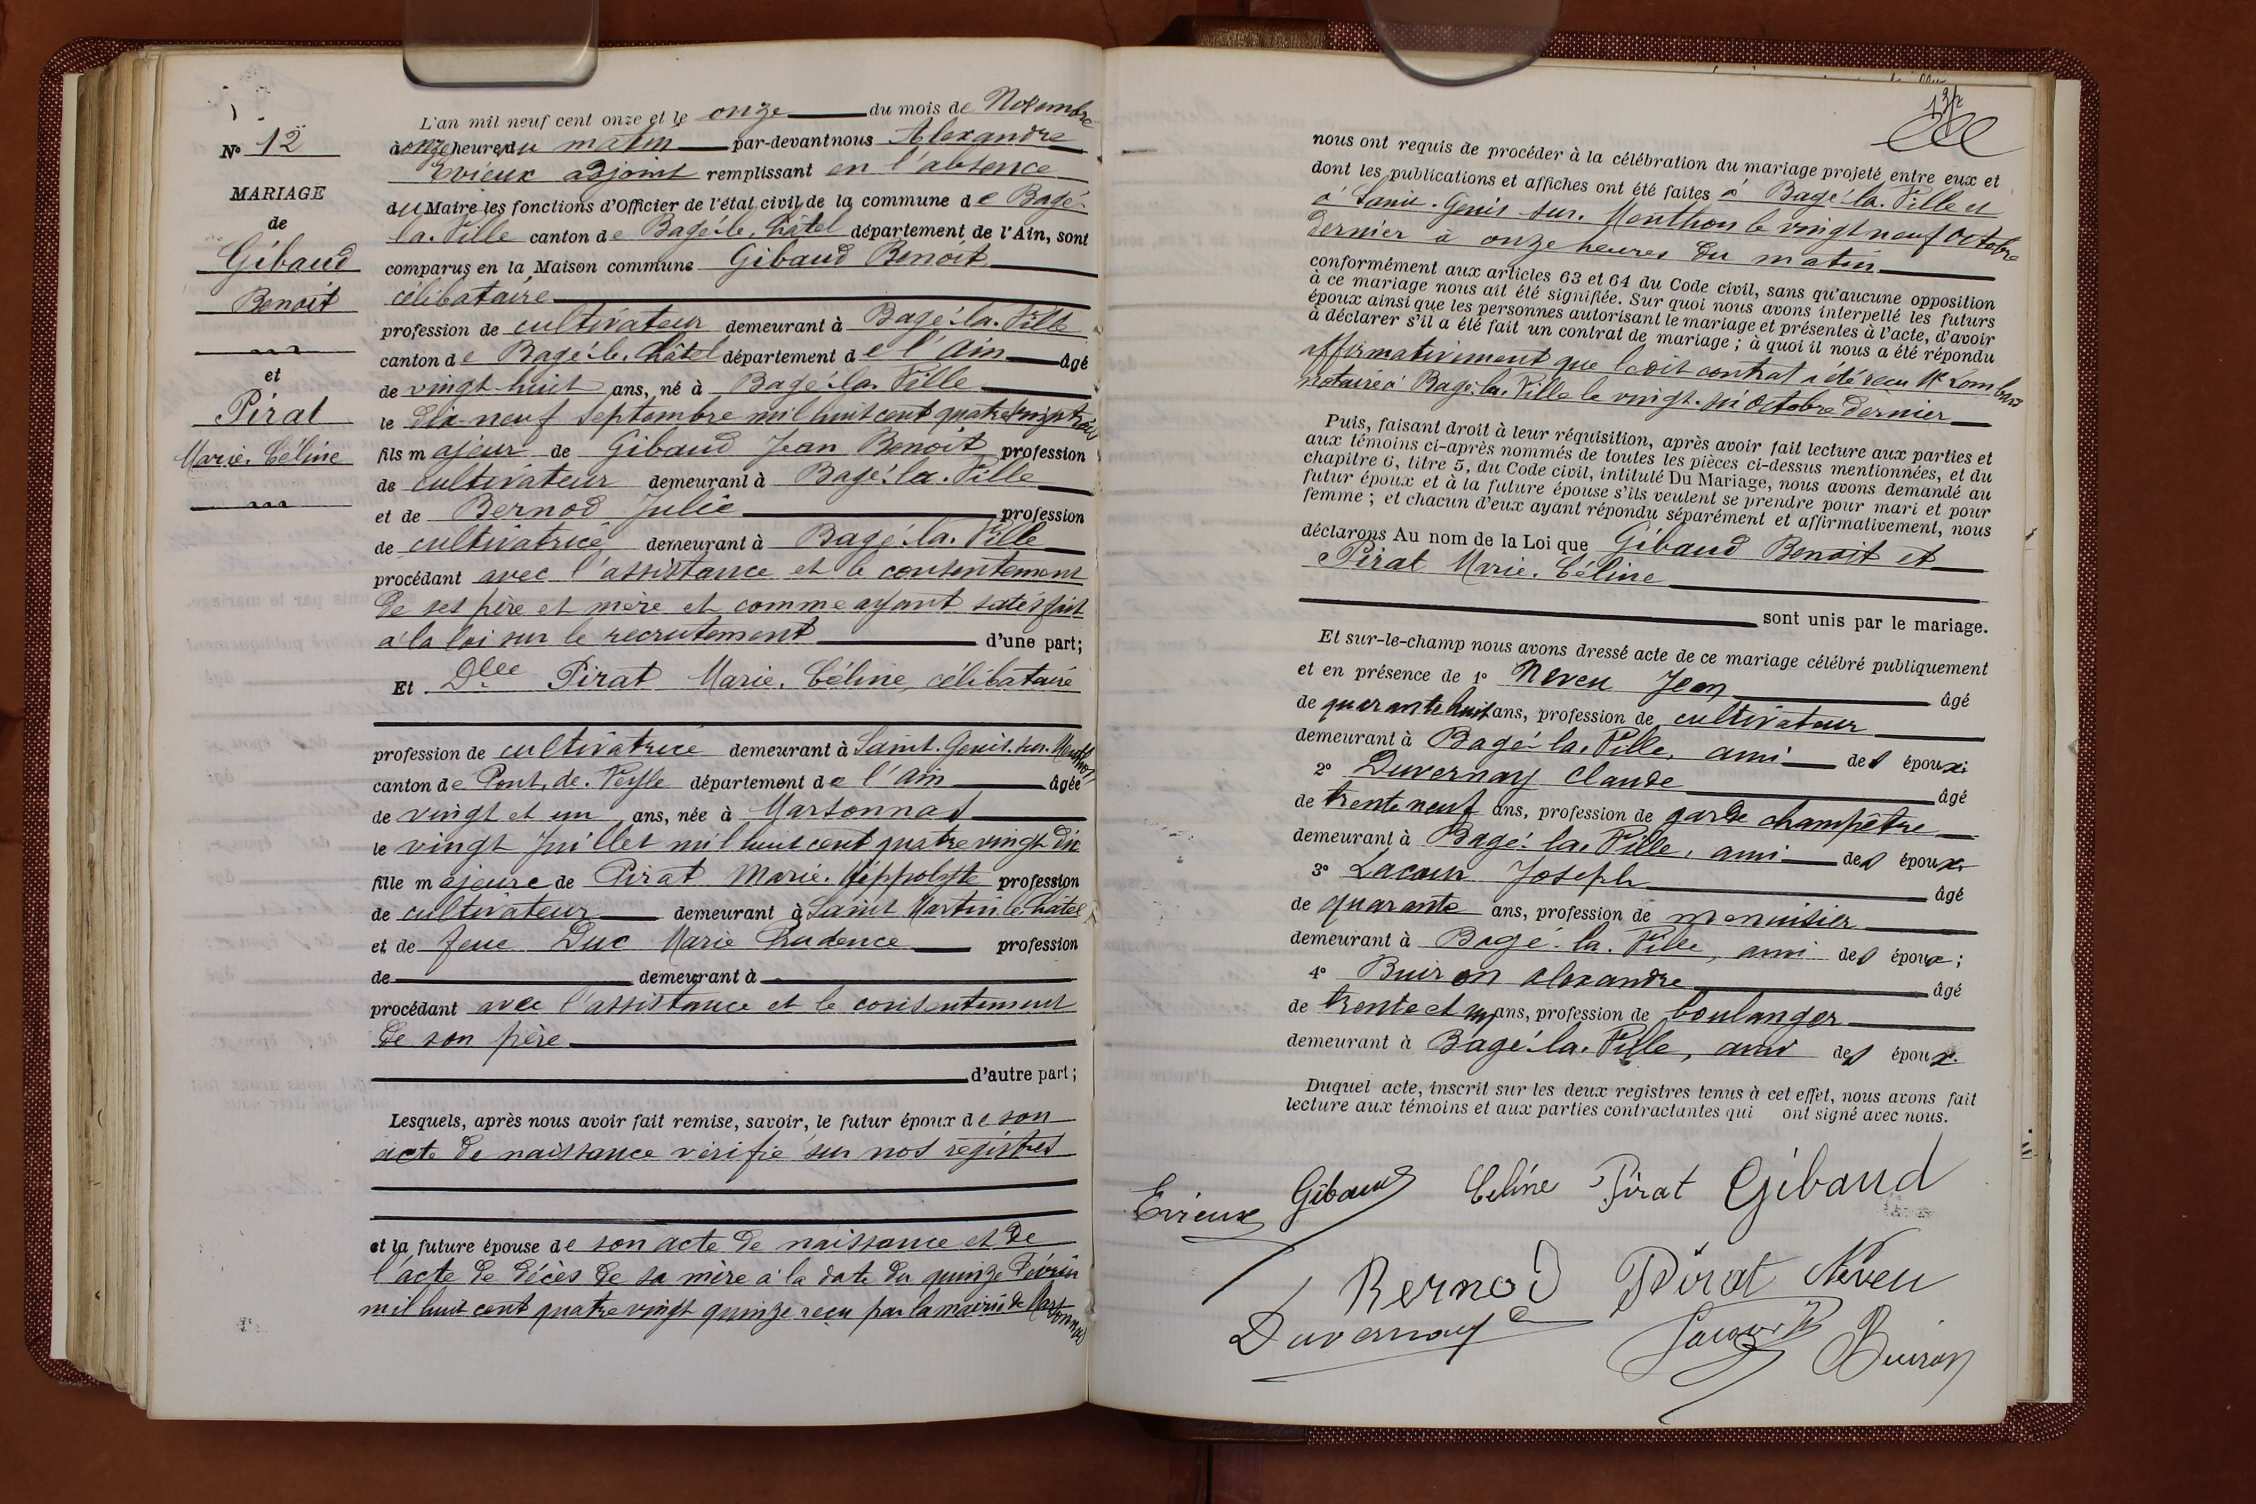 N° 12
MARIAGE
de
Gibaud
Benoit
et
Pirat
Marie-Céline
L'an mil neuf cent onze et le onze du mois de Novembre
à onze heures du matin par-devant nous Alexandre
Evieux adjoint remplissant en l'absence
du Maire les fonctions d'Officier de l'état civil de la commune de Bagé-
la-Ville canton de Bagé-le-Châtel département de l'Ain, sont
comparus en la Maison commune Gibaud Benoit
célibataire
profession de cultivateur demeurant à Bagé-la-Ville
canton de Bagé-le-Châtel département de l'Ain âgé
de vingt-huit ans, né à Bagé-la-Ville
le dix-neuf septembre mil huit cent quatre vingt trois
fils majeur de Gibaud Jean Benoit profession
de cultivateur demeurant à Bagé-la-Ville
et de Bernod Julie profession
de cultivatrice demeurant à Bagé-la-Ville
procédant avec l'assistance et le consentement
de ses père et mère et comme ayant satisfait
à la loi sur le recrutement d'une part;
Et Dlle Pirat Marie-Céline, célibataire
profession de cultivatrice demeurant à Saint-Genis-sur-Menthon
canton de Pont-de-Veyle département de l'Ain âgée
de vingt et un ans, née à Marsonnas
le vingt Juillet mil huit cent quatre vingt dix
fille majeure de Pirat Marie-Hippolyte profession
de cultivateur demeurant à Saint Martin le Châtel
et de feue Duc Marie Prudence profession
de demeurant à
procédant avec l'assistance et le consentement
de son père
d'autre part;
Lesquels, après nous avoir fait remise, savoir, le futur époux de son
acte de naissance vérifié sur nos registres
et la future épouse de son acte de naissance et de
l'acte de décès de sa mère à la date du quinze Février
mil huit cent quatre vingt quinze reçu par la mairie de Marsonnas
132
nous ont requis de procéder à la célébration du mariage projeté entre eux et
dont les publications et affiches ont été faites à Bagé-la-Ville et
à Saint-Genis-sur-Menthon le vingt neuf Octobre
dernier à onze heures du matin
conformément aux articles 63 et 64 du Code civil, sans qu'aucune opposition
à ce mariage nous ait été signifiée. Sur quoi nous avons interpellé les futurs
époux ainsi que les personnes autorisant le mariage et présentes à l'acte, d'avoir
à déclarer s'il a été fait un contrat de mariage; à quoi il nous a été répondu
affirmativement que le dit contrat a été reçu Me
notaire à Bagé-la-Ville le vingt-six Octobre dernier
Puis, faisant droit à leur réquisition, après avoir fait lecture aux parties et
aux témoins ci-après nommés de toutes les pièces ci-dessus mentionnées, et du
chapitre 6, titre 5, du Code civil, intitulé Du Mariage, nous avons demandé au
futur époux et à la future épouse s'ils veulent se prendre pour mari et pour
femme; et chacun d'eux ayant répondu séparément et affirmativement, nous
déclarons Au nom de la Loi que Gibaud Benoit et
Pirat Marie-Céline
sont unis par le mariage.
Et sur-le-champ nous avons dressé acte de ce mariage célébré publiquement
et en présence de 1° Neveu Jean âgé
de quarante huit ans, profession de cultivateur
demeurant à Bagé-la-Ville, ami des époux;
2° Duvernay Claude âgé
de trente neuf ans, profession de garde champêtre
demeurant à Bagé-la-Ville, ami des époux
3° Lacour Joseph âgé
de quarante ans, profession de menuisier
demeurant à Bagé-la-Ville, ami des époux;
4° Buiron Alexandre âgé
de trente et un ans, profession de boulanger
demeurant à Bagé-la-Ville, ami des époux.
Duquel acte, inscrit sur les deux registres tenus à cet effet, nous avons fait
lecture aux témoins et aux parties contractantes qui ont signé avec nous.
Evieux Gibaud Céline Pirat Gibaud
Bernod Pirat Neveu
Duvernay Lacour Buiron